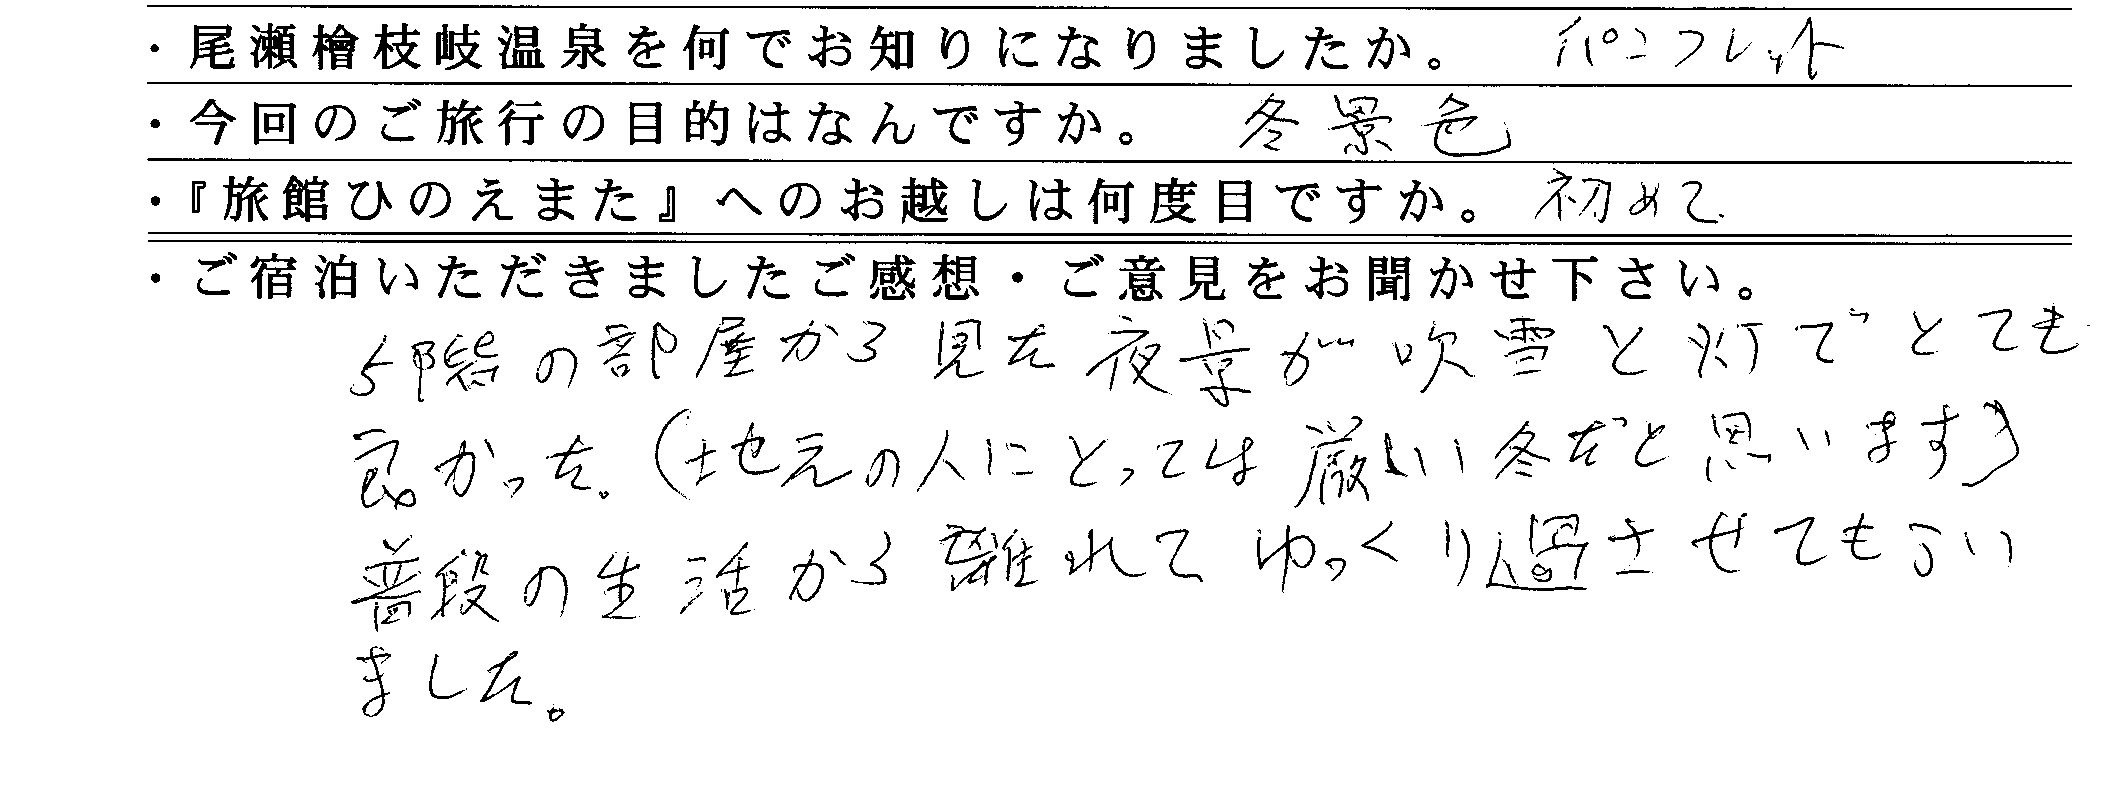 ・尾瀬檜枝岐温泉を何でお知りになりましたか。 パンフレット
・今回のご旅行の目的はなんですか。 冬景色
・『旅館ひのえまた』へのお越しは何度目ですか。 初めて
・ご宿泊いただきましたご感想・ご意見をお聞かせ下さい。
5階の部屋から見た夜景が吹雪と灯でとても
良かった。(地元の人にとっては厳しい冬だと思います)
普段の生活から離れてゆっくり過させてもらい
ました。